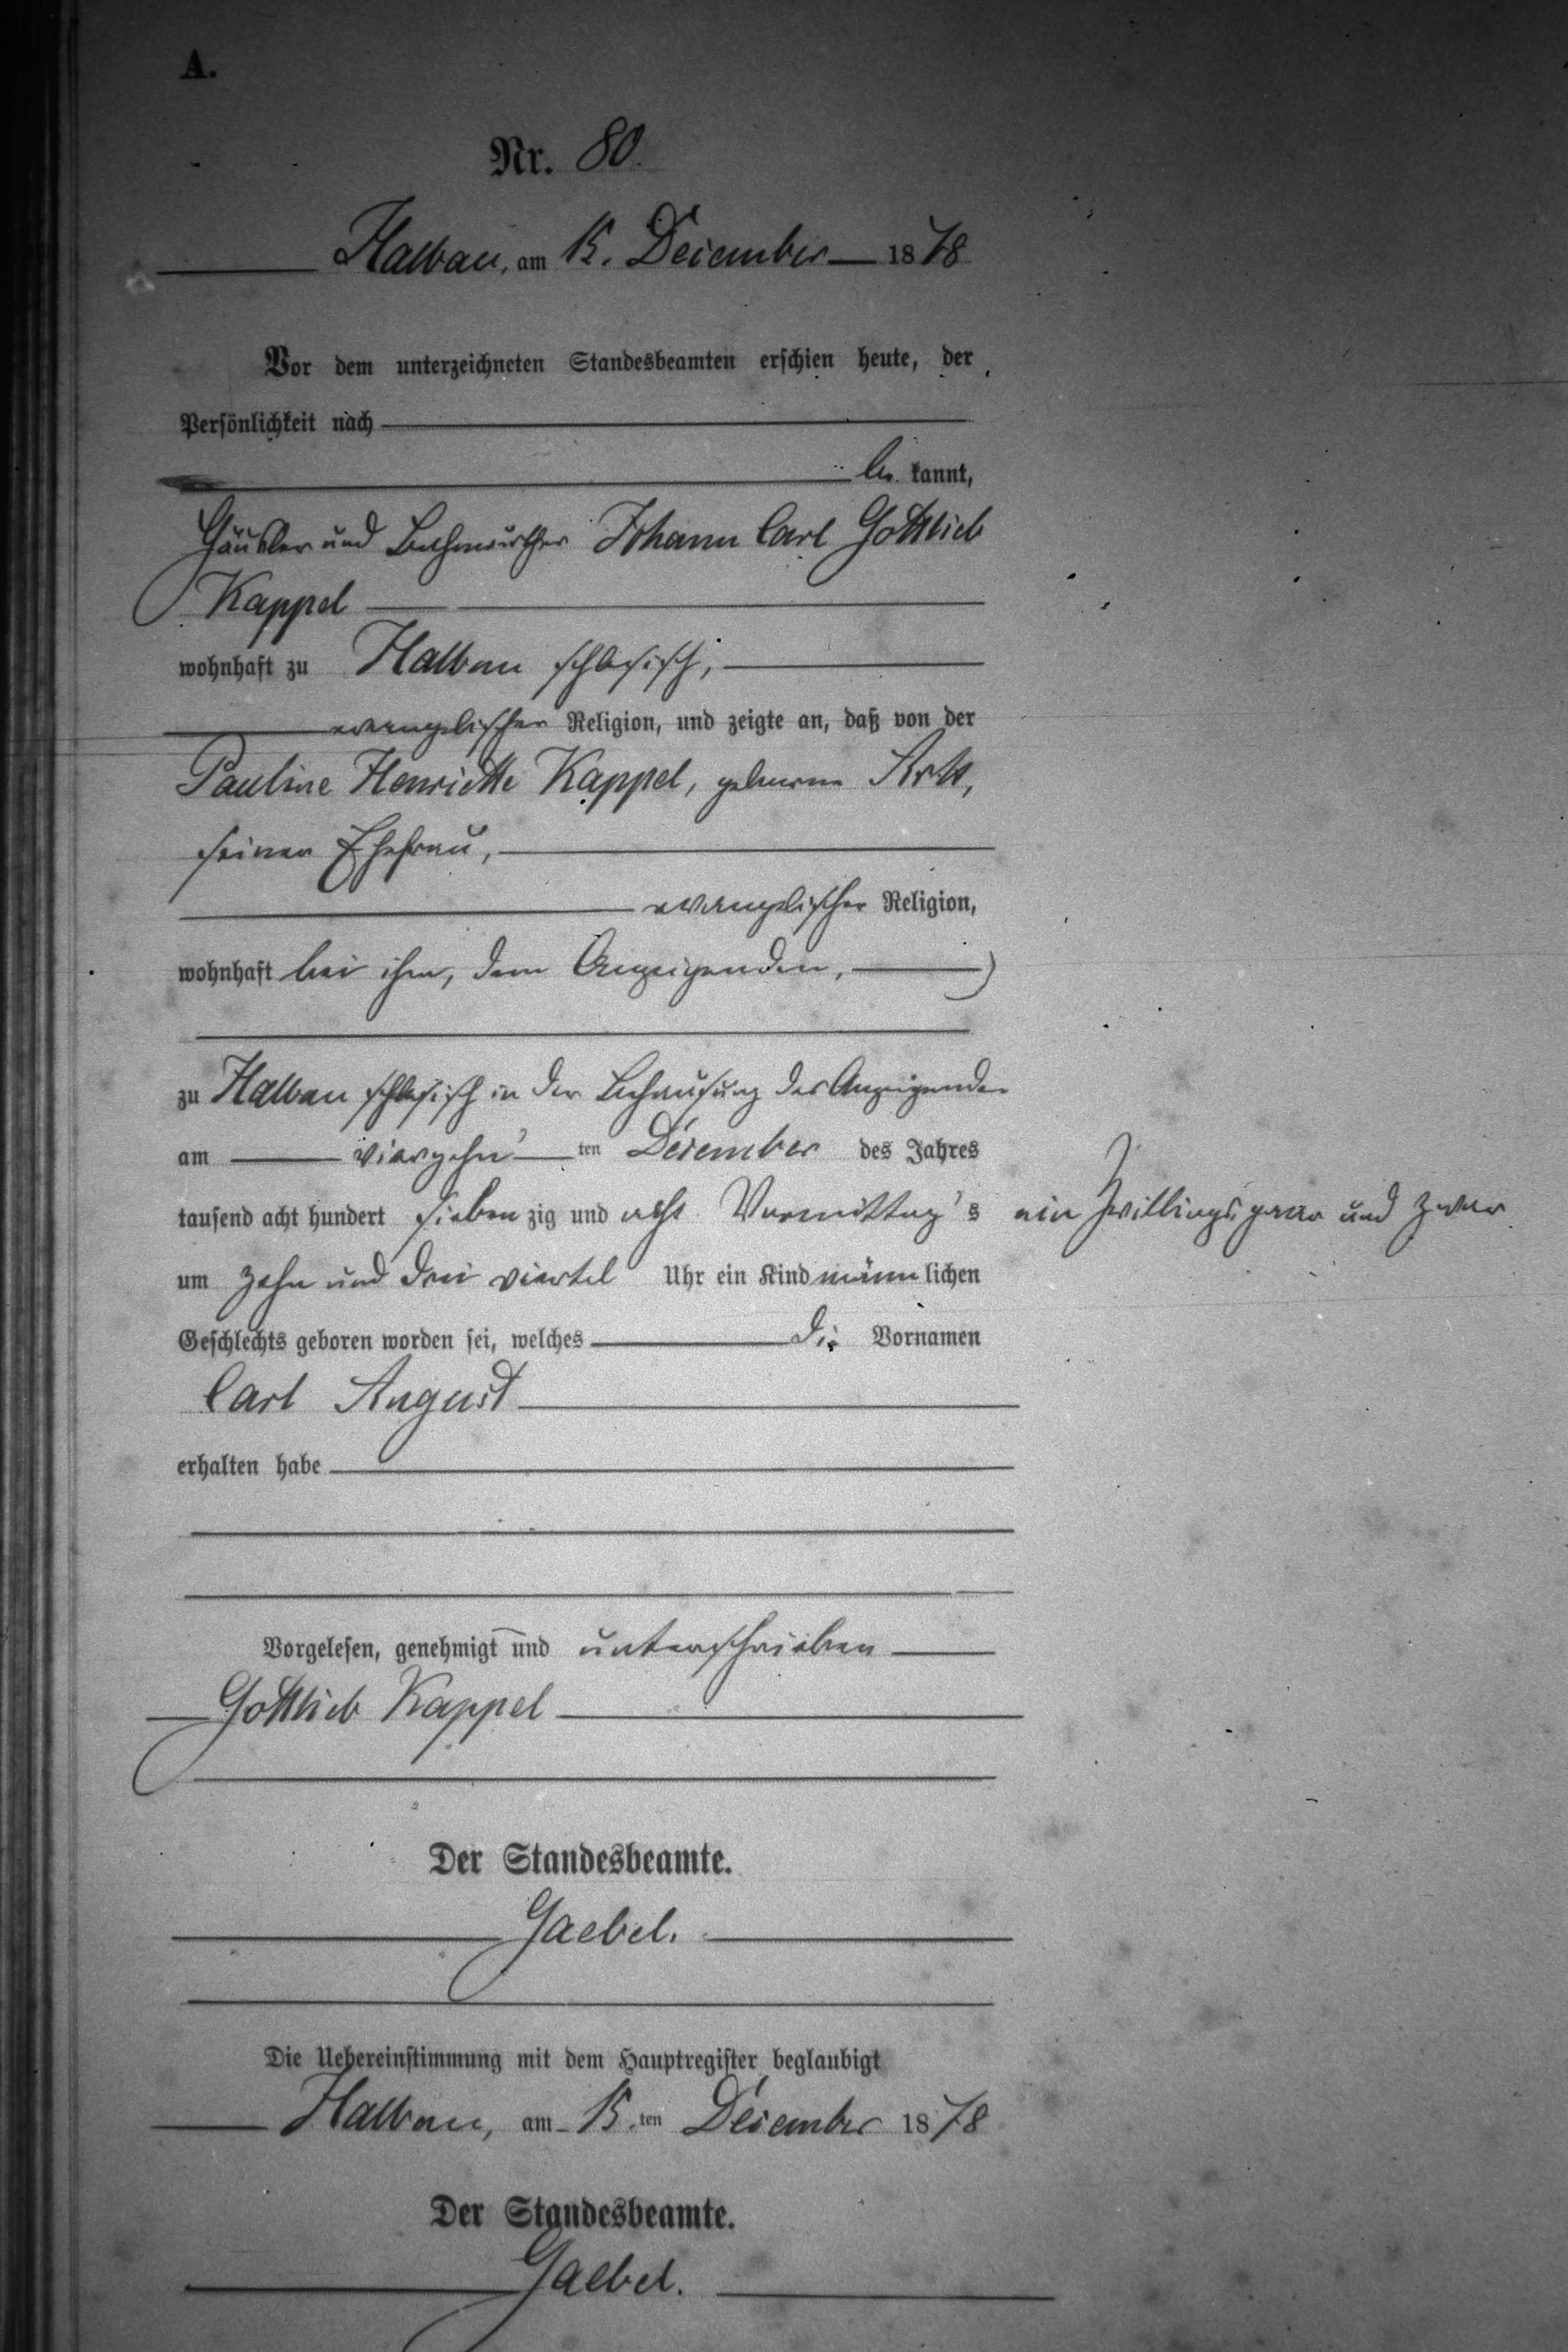 A.
Nr. 80.
Halbau, am 15. December 1878
Vor dem unterzeichneten Standesbeamten erschien heute, der
Persönlichkeit nach
be kannt,
Häusler und Johann Carl Gottlieb
Kappel
wohnhaft zu Halbau schlesisch,
evangelischer Religion, und zeigte an, daß von der
Pauline Henriette Kappel, geborene
seiner Ehefrau,
evangelischer Religion,
wohnhaft bei ihm, dem Anzeigenden,
zu Halbau schlesisch in der Behausung des Anzeigenden
am vierzehn ten December des Jahres
tausend acht hundert sieben zig und acht Vormittag's ein Zwillingspaar und zwar
um zehn und drei viertel Uhr ein Kind männlichen
Geschlechts geboren worden sei, welches die Vornamen
Carl August
erhalten habe
Vorgelesen, genehmigt und unterschrieben
Gottlieb Kappel
Der Standesbeamte.
Gaebel.
Die Uebereinstimmung mit dem Hauptregister beglaubigt
Halbau, am 15. ten December 1878
Der Standesbeamte.
Gaebel.